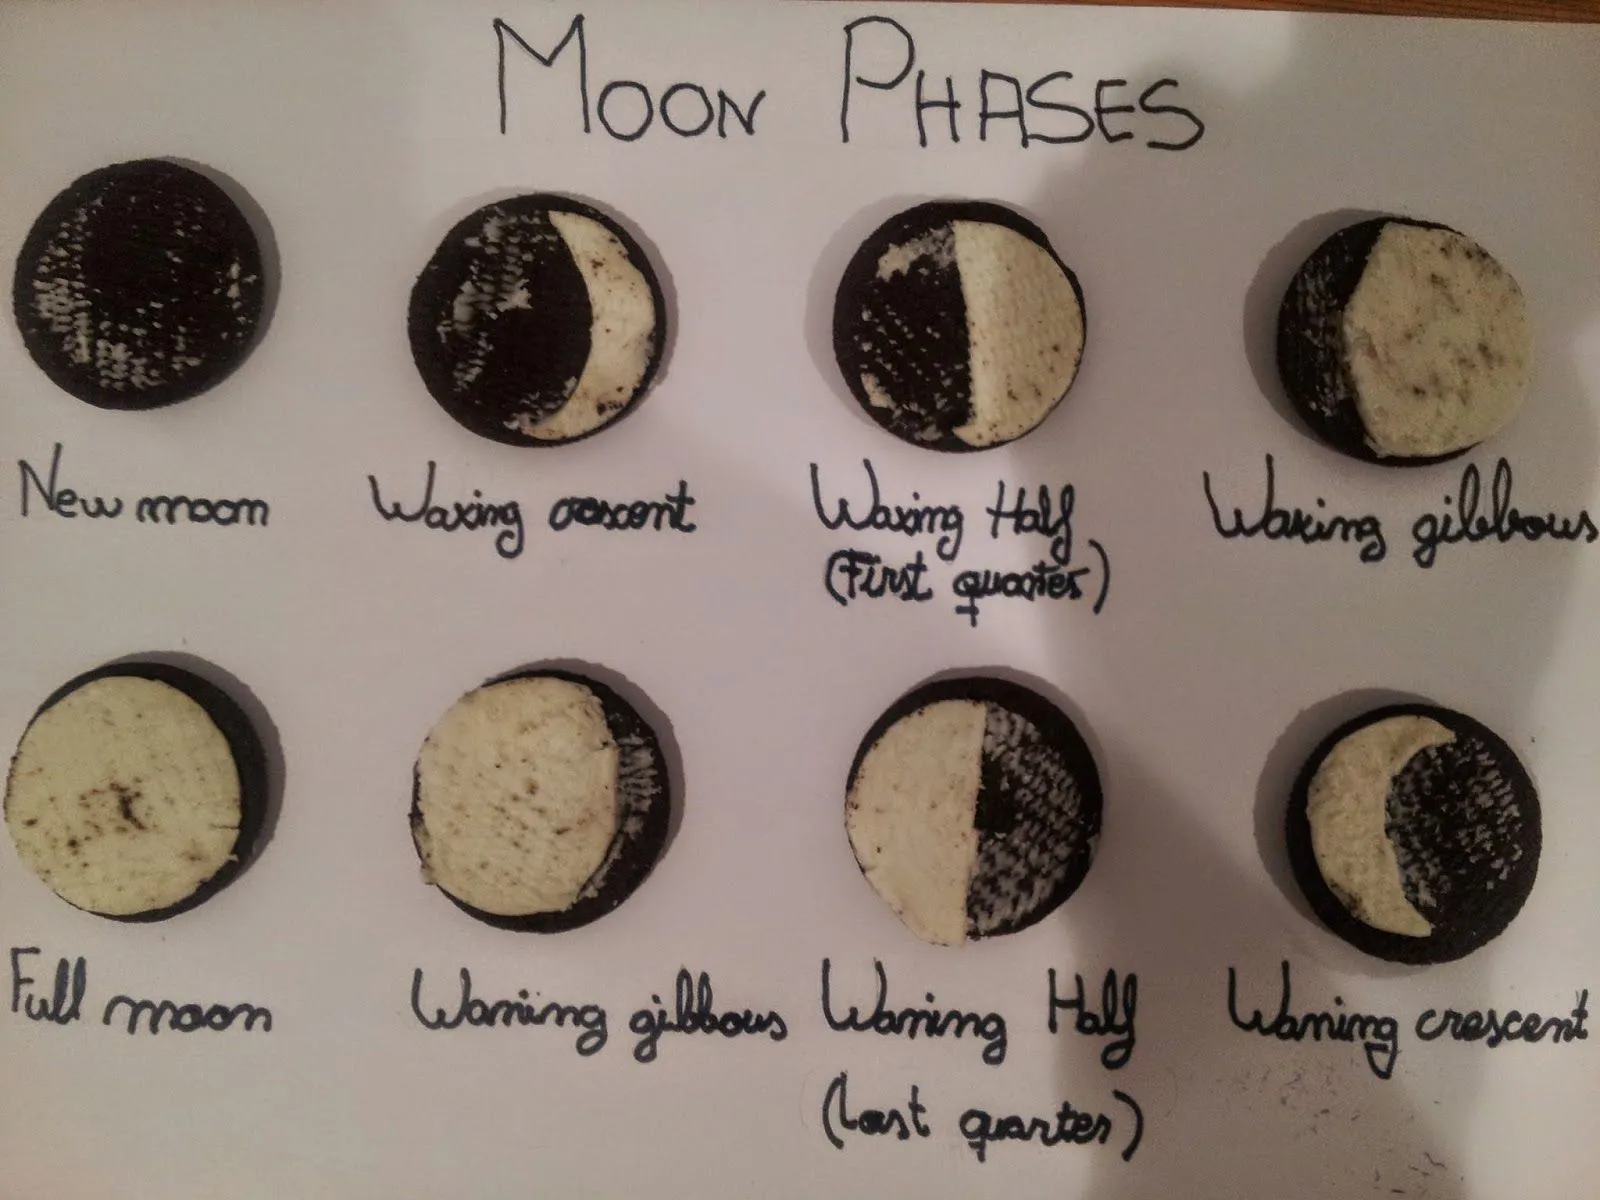 MOON PHASES
New moon
Waxing crescent
Waxing Half
(First quarter)
Waxing gibbous
Full moon
Waning gibbous
Waning Half
(last quarter)
Waning crescent